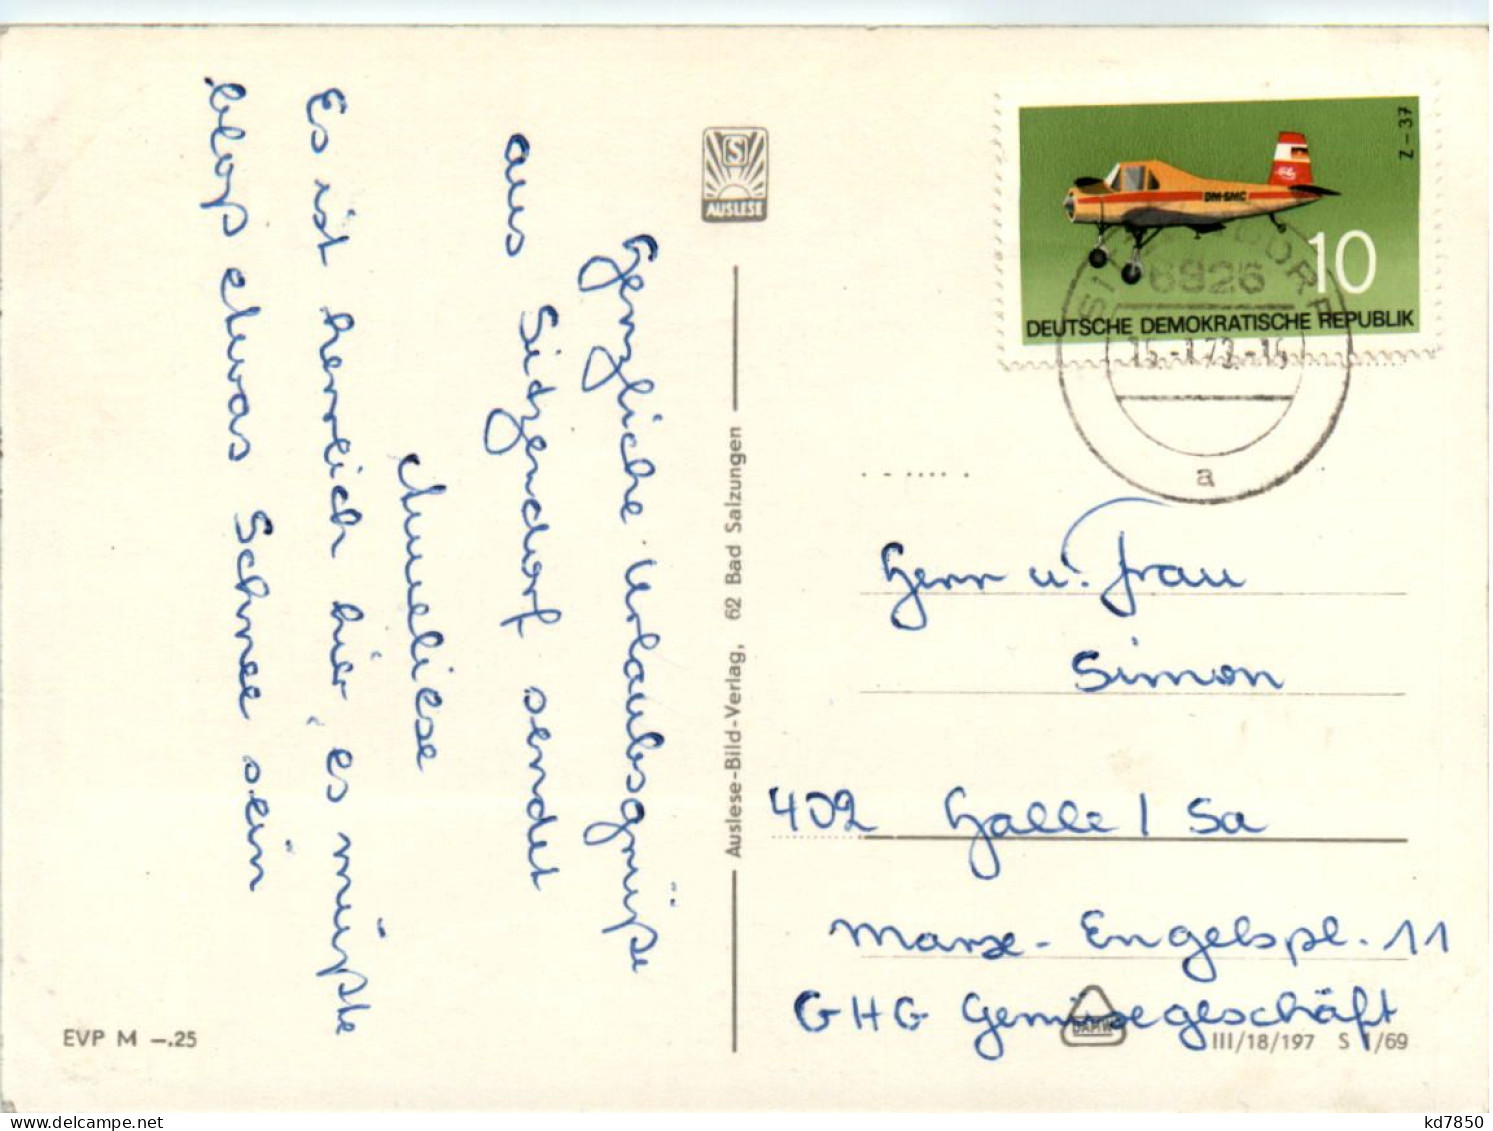 Herzliche Urlaubsgrüße
aus Sitzendorf sendet
Anneliese
Es ist herrlich hier, es müßte
bloß etwas Schnee sein
S
AUSLESE
Auslese-Bild-Verlag, 62 Bad Salzungen
EVP M —.25
Z-37
DM-SMC
10
DEUTSCHE DEMOKRATISCHE REPUBLIK
6926
a
Herr u. Frau
Simon
402 Halle / Sa
Marx-Engelspl. 11
GHG Gemüsegeschäft
DAMW
III/18/197 S 1/69
kd7850